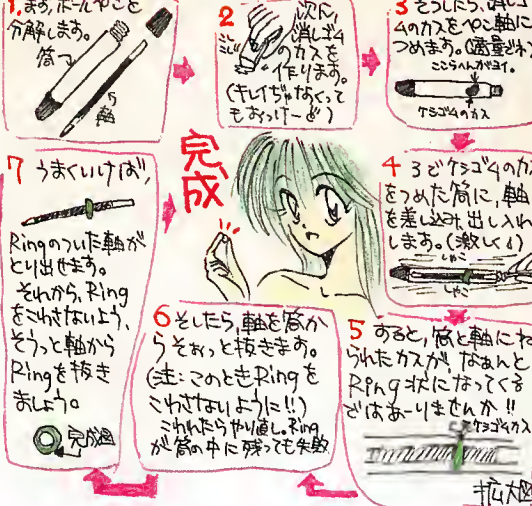 1.まず、ボールぺこを
分解します。
筒
軸
2 次に、
消しゴ4
のカスを
作ります。
(キレイぢゃなくって
もおっけーど)
ごしごし
3 そうしたら、消しゴ
4のカスをぺこ軸に
つめます。(適量ネ)
ここらへんがヨイ。
ケシゴ4のカス
4 3でケシゴ4のカス
をつめた筒に、軸
を差し込み、出し入れ
します。(激しく!)
しゃこ
しゃこ
5 すると、筒と軸にね
られたカスが、なぁんと
Ring状になってくる
ではあーりませんか!!
ケシゴ4カス
拡大図
6 そしたら、軸を筒か
らそおっと抜きます。
(注:このときRingを
こわさないように!!)
こわれたらやり直し。Ring
が筒の中に残っても失敗
7 うまくいけば、
Ringのついた軸が
とり出せます。
それから、Ring
をこわさないよう、
そうっと軸から
Ringを抜き
ましょう。
完成図
完成